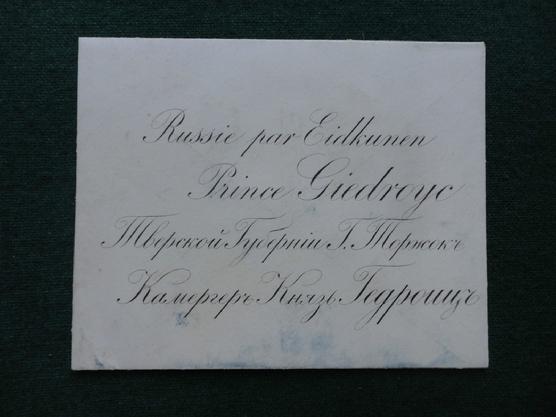 Russie par Eidkunen
Prince Giedroyc
Тверской Губерніи Г. Торжекъ
Камергеръ Князь Гедроицъ